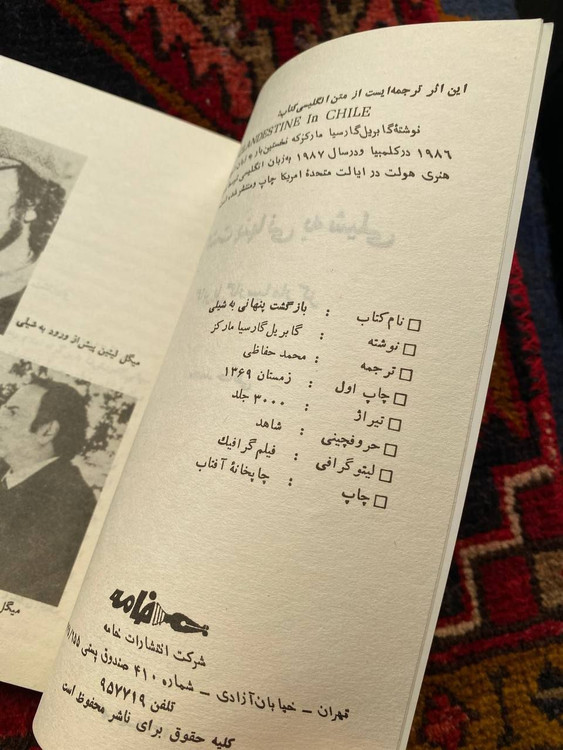 این اثر ترجمه‌ایست از متن انگلیسی کتاب:
CLANDESTINE In CHILE
نوشتهٔ گابریل گارسیا مارکز که نخستین بار
۱۹۸۶ در کلمبیا و در سال ۱۹۸۷ به زبان انگلیسی
هنری هولت در ایالت متحدهٔ امریکا چاپ و منتشر شده
نام کتاب : بازگشت پنهانی به شیلی
نوشته : گابریل گارسیا مارکز
ترجمه : محمد حفاظی
چاپ اول : زمستان ۱۳۶۹
تیراژ : ۳۰۰۰ جلد
حروفچینی : شاهد
لیتوگرافی : فیلم گرافیک
چاپ : چاپخانهٔ آفتاب
خامه
شرکت انتشارات خامه
تهران – خیابان آزادی – شماره ۴۱۰ صندوق پستی
تلفن ۹۵۷۷۱۹
کلیه حقوق برای ناشر محفوظ است
میگل لیتین پیش از ورود به شیلی
میگل